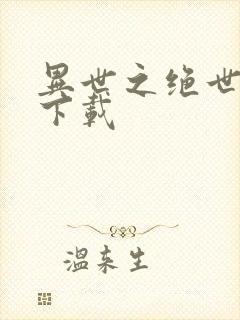 異世之绝世
下載
溫来生